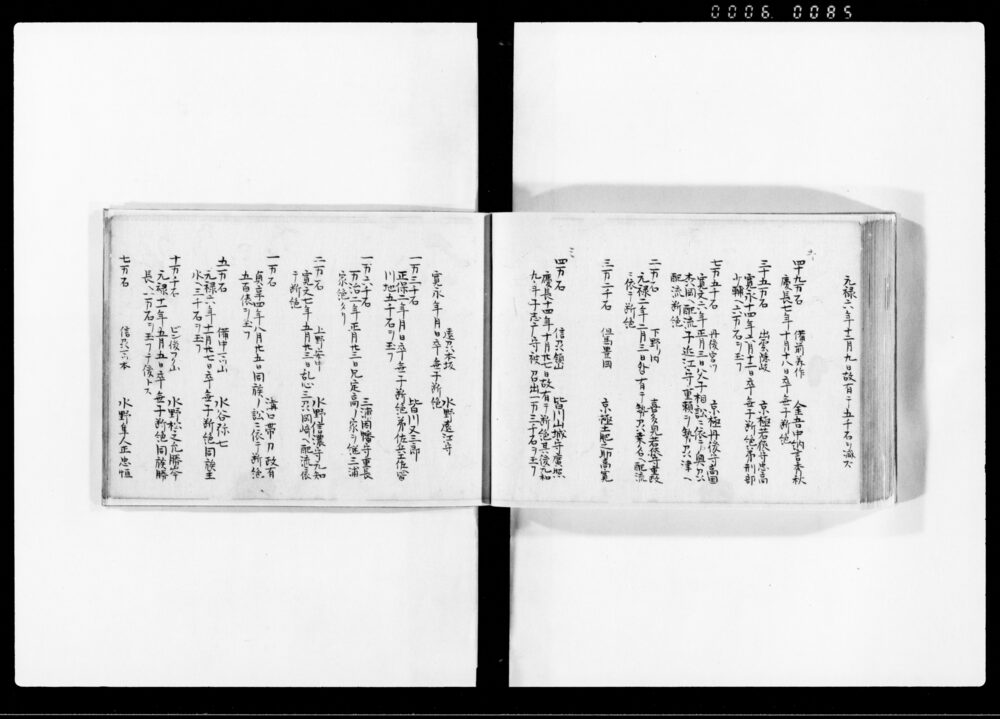 0006 0085
元禄六年十二月九日故有テ五千石ヲ減ス
四十九万石 備前美作 金吾中納言秀秋
慶長七年十月十八日卒無子断絶
三十五万石 出雲隠岐 京極若狭守忠高
寛永十四年六月十二日卒無子断絶弟刑部
少輔ヘ六万石ヲ玉フ
七万五千石 丹後宮ツ 京極丹後守高国
寛文六年正月三日父子相訟ニ依テ奥乃
配流断絶
二万石 下野ノ内 喜多見若狭守重政
元禄二年二月三日外有テ勢乃桑名配流
ニ依テ断絶
三万二千石 但馬豊岡 京極土肥之助高寛
四万石 信乃飯山 皆川山城守廣照
慶長十四年十月廿七日故有テ断絶其後元和
九年子志テ守被召出一万三千石ヲ玉フ
寛永年月日卒無子断絶
水野遠江守
一万三千石 皆川又三郎
正保二年月日卒無子断絶弟佐兵左衛
川地五千石ヲ玉フ
一万二千石 三浦因幡守重長
万治二年正月廿三日兄定高ノ家ヲ継三浦
家絶タリ
二万石 上野安中 水野信濃守元知
寛文七年五月廿三日乱心三乃岡崎ヘ配流依
テ断絶
一万石 溝口帯刀政有
貞享四年八月廿五日同族ノ訟ニ依テ断絶
五百俵ヲ玉フ
五万石 備中マツ山 水谷弥七
元禄六年十一月廿七日卒無子断絶同族主
水ヘ三千石ヲ玉フ
十万千石 ビン後フク山 水野松之丞勝岑
元禄十一年五月五日卒無子断絶同族勝
長ヘ一万石ヲ玉フテ後トス
七万石 信乃マツ本 水野隼人正忠恒